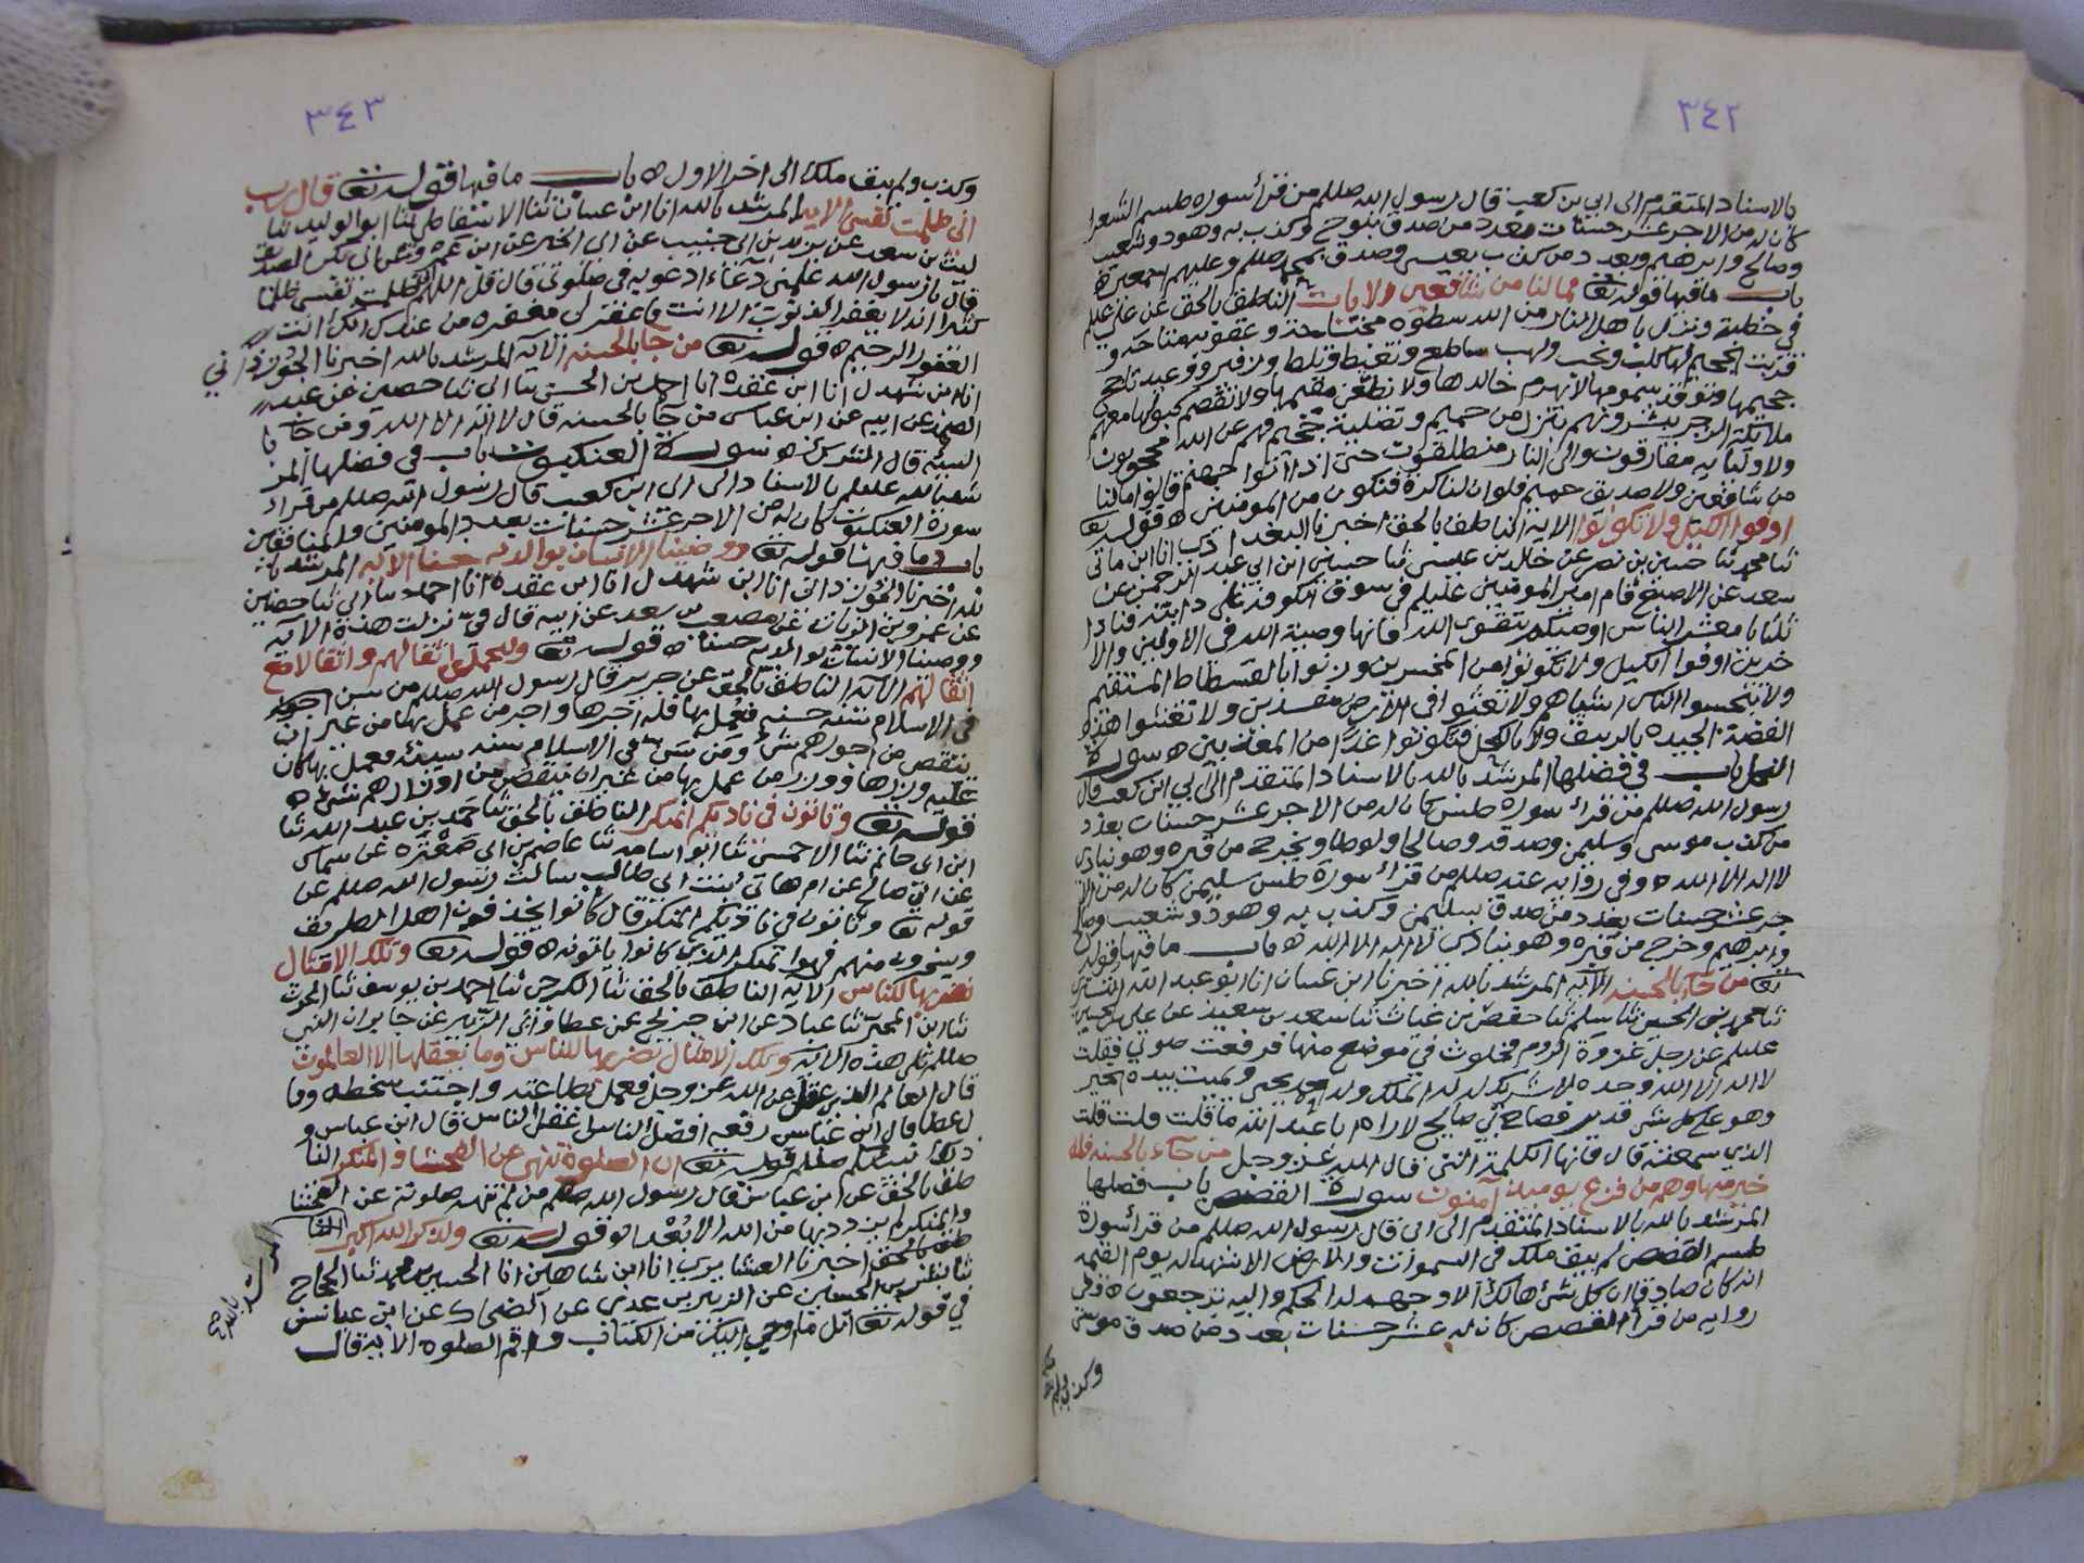 ٣٤٢
بالاسناد المتقدم الى ابي بن كعب قال رسول الله صللم من قرأ سورة طسم الشعرا
كان له من الاجر عشر حسنات بعدد من صدق بنوح وكذب به وهود وشعيب
وصالح وابرهيم وبعدد من كذب بعيسى وصدق بمحمد صللم وعليهم اجمعين ه
باب ما فيها قوله تع فما لنا من شافعين الايات الناطق بالحق عن علي عليلم
في خطبة ونزل باهل النار من الله سطوة مجتاحة وعقوبة متاحة و
قربت الجحيم لها كلب ولجب ولهب ساطع وتغيظ وتلظ وزفير ووعيد تاجج
جحيمها وتوقد سمومها لا يهرم خالدها ولا يظعن مقيمها ولا تفصم كبولها معهم
ملائكة الزجر يبشرونهم بنزل من حميم وتصلية جحيم فهم عن الله محجوبون
ولاوليائه مفارقون والى النار منطلقون حتى اذا اتوا جهنم قالوا ما لنا
من شافعين ولا صديق حميم فلو ان لنا كرة فنكون من المومنين ه قوله تع
اوفوا الكيل ولا تكونوا الاية الناطق بالحق اخبرنا البغدادي انا ابن ماتي
ثنا محمد ثنا حسين بن نصر عن خالد بن عيسى ثنا حسين ابن ابي عبد الرحمن عن
سعد عن الاصبغ قام امير المومنين عليلم في سوق الكوفة على دابته فنادا
ثلثا يا معشر الناس اوصيكم بتقوى الله فانها وصية الله في الاولين والا
خرين اوفوا الكيل ولا تكونوا من المخسرين وزنوا بالقسطاط المستقيم
ولا تبخسوا الناس اشياهم ولا تعثوا في الارض مفسدين ولا تغشوا هذه
الفضة الجيدة بالزيبق ولا بالكحل فتكونوا غدا من المعذبين ه سورة
النمل باب في فضلها المرشد بالله بالاسناد المتقدم الى ابي ابن كعب قال
رسول الله صللم من قرأ سورة طس كان له من الاجر عشر حسنات بعدد
من كذب موسى وسليمن وصدقه وصالحا ولوطا ويخرج من قبره وهو ينادي
لا اله الا الله ه وفي رواية عنه صللم من قرأ سورة طس سليمن كان له من الا
جر عشر حسنات بعدد من صدق بسليمن وكذب به وهود وشعيب وصالح
وابرهيم وخرج من قبره وهو ينادي لا اله الا الله ه باب ما فيها قوله
تع من جاء بالحسنة الاية المرشد بالله اخبرنا ابن غسان انا ابو عبد الله التستري
ثنا محمد بن الحسين ثنا سلم ثنا حفص بن غياث ثنا سعد بن سعيد عن علي بن الحسين
عليلم عن رجل غزوة الروم فخلوت في موضع منها فرفعت صوتي فقلت
لا اله الا الله وحده لا شريك له له الملك وله الحمد يحي ويميت بيده الخير
وهو على كل شي قدير فصاح بي صايح لا اراه يا عبد الله ما قلت قلت قلت
الذي سمعته قال فانها الكلمة التي قال الله عز وجل من جاء بالحسنة فله
خير منها وهم من فزع يوميذ آمنون سورة القصص باب فضلها
المرشد بالله بالاسناد المتقدم الى ابي قال رسول الله صللم من قرأ سورة
طسم القصص لم يبق ملك في السموات والارض الا شهد له يوم القيمة
انه كان صادقا ان كل شئ هالك الا وجهه له الحكم واليه ترجعون ه وفي
رواية من قرأ القصص كان له عشر حسنات بعدد من صدق موسى
وكذب ولم يبق ملك
٣٤٣
وكذب ولم يبق ملك الى اخر الاول ه باب ما فيها قوله تع قال رب
اني ظلمت نفسي الاية المرشد بالله انا ابن غسان ثنا الاسفاطي ثنا ابو الوليد ثنا
ليث بن سعد عن يزيد بن ابي حبيب عن ابي الخير عن ابن عمرو عن ابي بكر الصديق
قال يا رسول الله علمني دعاء ادعو به في صلوتي قال قل اللهم اني ظلمت نفسي ظلما
كثيرا انه لا يغفر الذنوب الا انت فاغفر لي مغفرة من عندك انك انت
الغفور الرحيم ه قوله تع من جا بالحسنة الاية المرشد بالله اخبرنا الجوزذاني
انا ابن شهدل انا ابن عقدة انا احمد بن الحسن ثنا ابي ثنا حصين عن عبيد
الصمد عن ابيه عن ابن عباس من جآ بالحسنة قال لا اله الا الله ومن جآ با
السيئة قال الشرك ه سورة العنكبوت باب في فضلها المر
شد بالله عليلم بالاسناد الى ابي ابن كعب قال رسول الله صللم من قراء
سورة العنكبوت كان له من الاجر عشر حسنات بعدد المومنين والمنافقين
باب ما فيها قوله تع ووصينا الانسان بوالديه حسنا الاية المرشد با
لله اخبرنا الجوزذاني انا ابن شهدل انا ابن عقدة انا احمد ثنا ابي ثنا حصين
عن عمرو بن الزيات عن مصعب بن سعد عن ابيه قال في نزلت هذه الاية
ووصينا الانسان بوالديه حسنا ه قوله تع وليحملن اثقالهم واثقالا مع
اثقالهم الآية الناطق بالحق عن جرير قال رسول الله صللم من سن
في الاسلام سنة حسنة فعمل بها فله اجرها واجر من عمل بها من غير ان
ينقص من اجورهم شئ ومن سن في الاسلام سنة سيئة فعمل بها كان
عليه وزرها ووزر من عمل بها من غير ان ينتقص من اوزارهم شئ ه
قوله تع وتاتون في ناديكم المنكر الناطق بالحق ثنا حمد بن عبد الله ثنا
ابن ابي حاتم ثنا الاحمسي ثنا ابو اسامة ثنا عاصم بن ابي صغيرة عن سماك
عن ابي صالح عن ام هاني بنت ابي طالب سالت رسول الله صللم عن
قوله تع وتاتون في ناديكم المنكر قال كانوا يخذفون اهل الطريق
ويسخرون منهم فهو المنكر الذي كانوا ياتونه ه قوله تع وتلك الامثال
نضربها للناس الاية الناطق بالحق ثنا الكرخي ثنا احمد بن يوسف ثنا الحرث
ثنا ابن المحبر ثنا عباد عن ابن جريج عن عطا وابي الزبير عن جابر ان النبي
صللم تلى هذه الاية وتلك الامثال نضربها للناس وما يعقلها الا العالمون
قال العالم الذي عقل عن الله عز وجل فعمل بطاعته واجتنب سخطه وما
ل عطا قال ابن عباس رفعه افضل الناس اعقل الناس قال ابن عباس و
ذلك نبيكم صللم قوله تع ان الصلوة تنهى عن الفحشا والمنكر النا
طق بالحق عن ابن عباس قال رسول الله صللم من لم تنهه صلوته عن الفحشا
والمنكر لم يزدد بها من الله الا بعدا ه قوله تع ولذكر الله اكبر
طق بالحق اخبرنا العشايري انا ابن شاهين انا الحسين بن محمد ثنا الحجاج
ثنا بشر بن الحسين عن الزبير بن عدي عن الضحاك عن ابن عباس
في قوله تع اتل ما اوحي اليك من الكتاب واقم الصلوة الاية قال
المرشد بالله صح